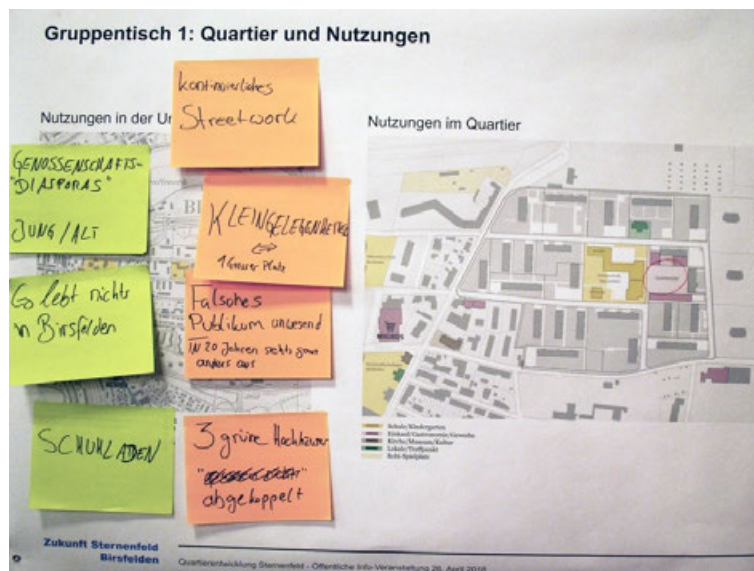 Gruppentisch 1: Quartier und Nutzungen
Nutzungen in der Ur
Nutzungen im Quartier
kontinuierliches
Streetwork
GENOSSENSCHAFTS-
"DIASPORAS"
JUNG/ALT
KLEINGELEGENHEITEN
⇔
1 Grosser Platz
Es lebt nichts
in Birsfelden
Falsches
Publikum anwesend
IN 20 Jahren siehts ganz
anders aus
SCHUHLADEN
3 grüne Hochhäuser
abgekoppelt
MIGROS
Schule/Kindergarten
Einkauf/Gastronomie/Gewerbe
Kirche/Museum/Kultur
Lokale/Treffpunkt
Robi-Spielplatz
Zukunft Sternenfeld
Birsfelden
Quartierentwicklung Sternenfeld - Öffentliche Info-Veranstaltung 26. April 2016